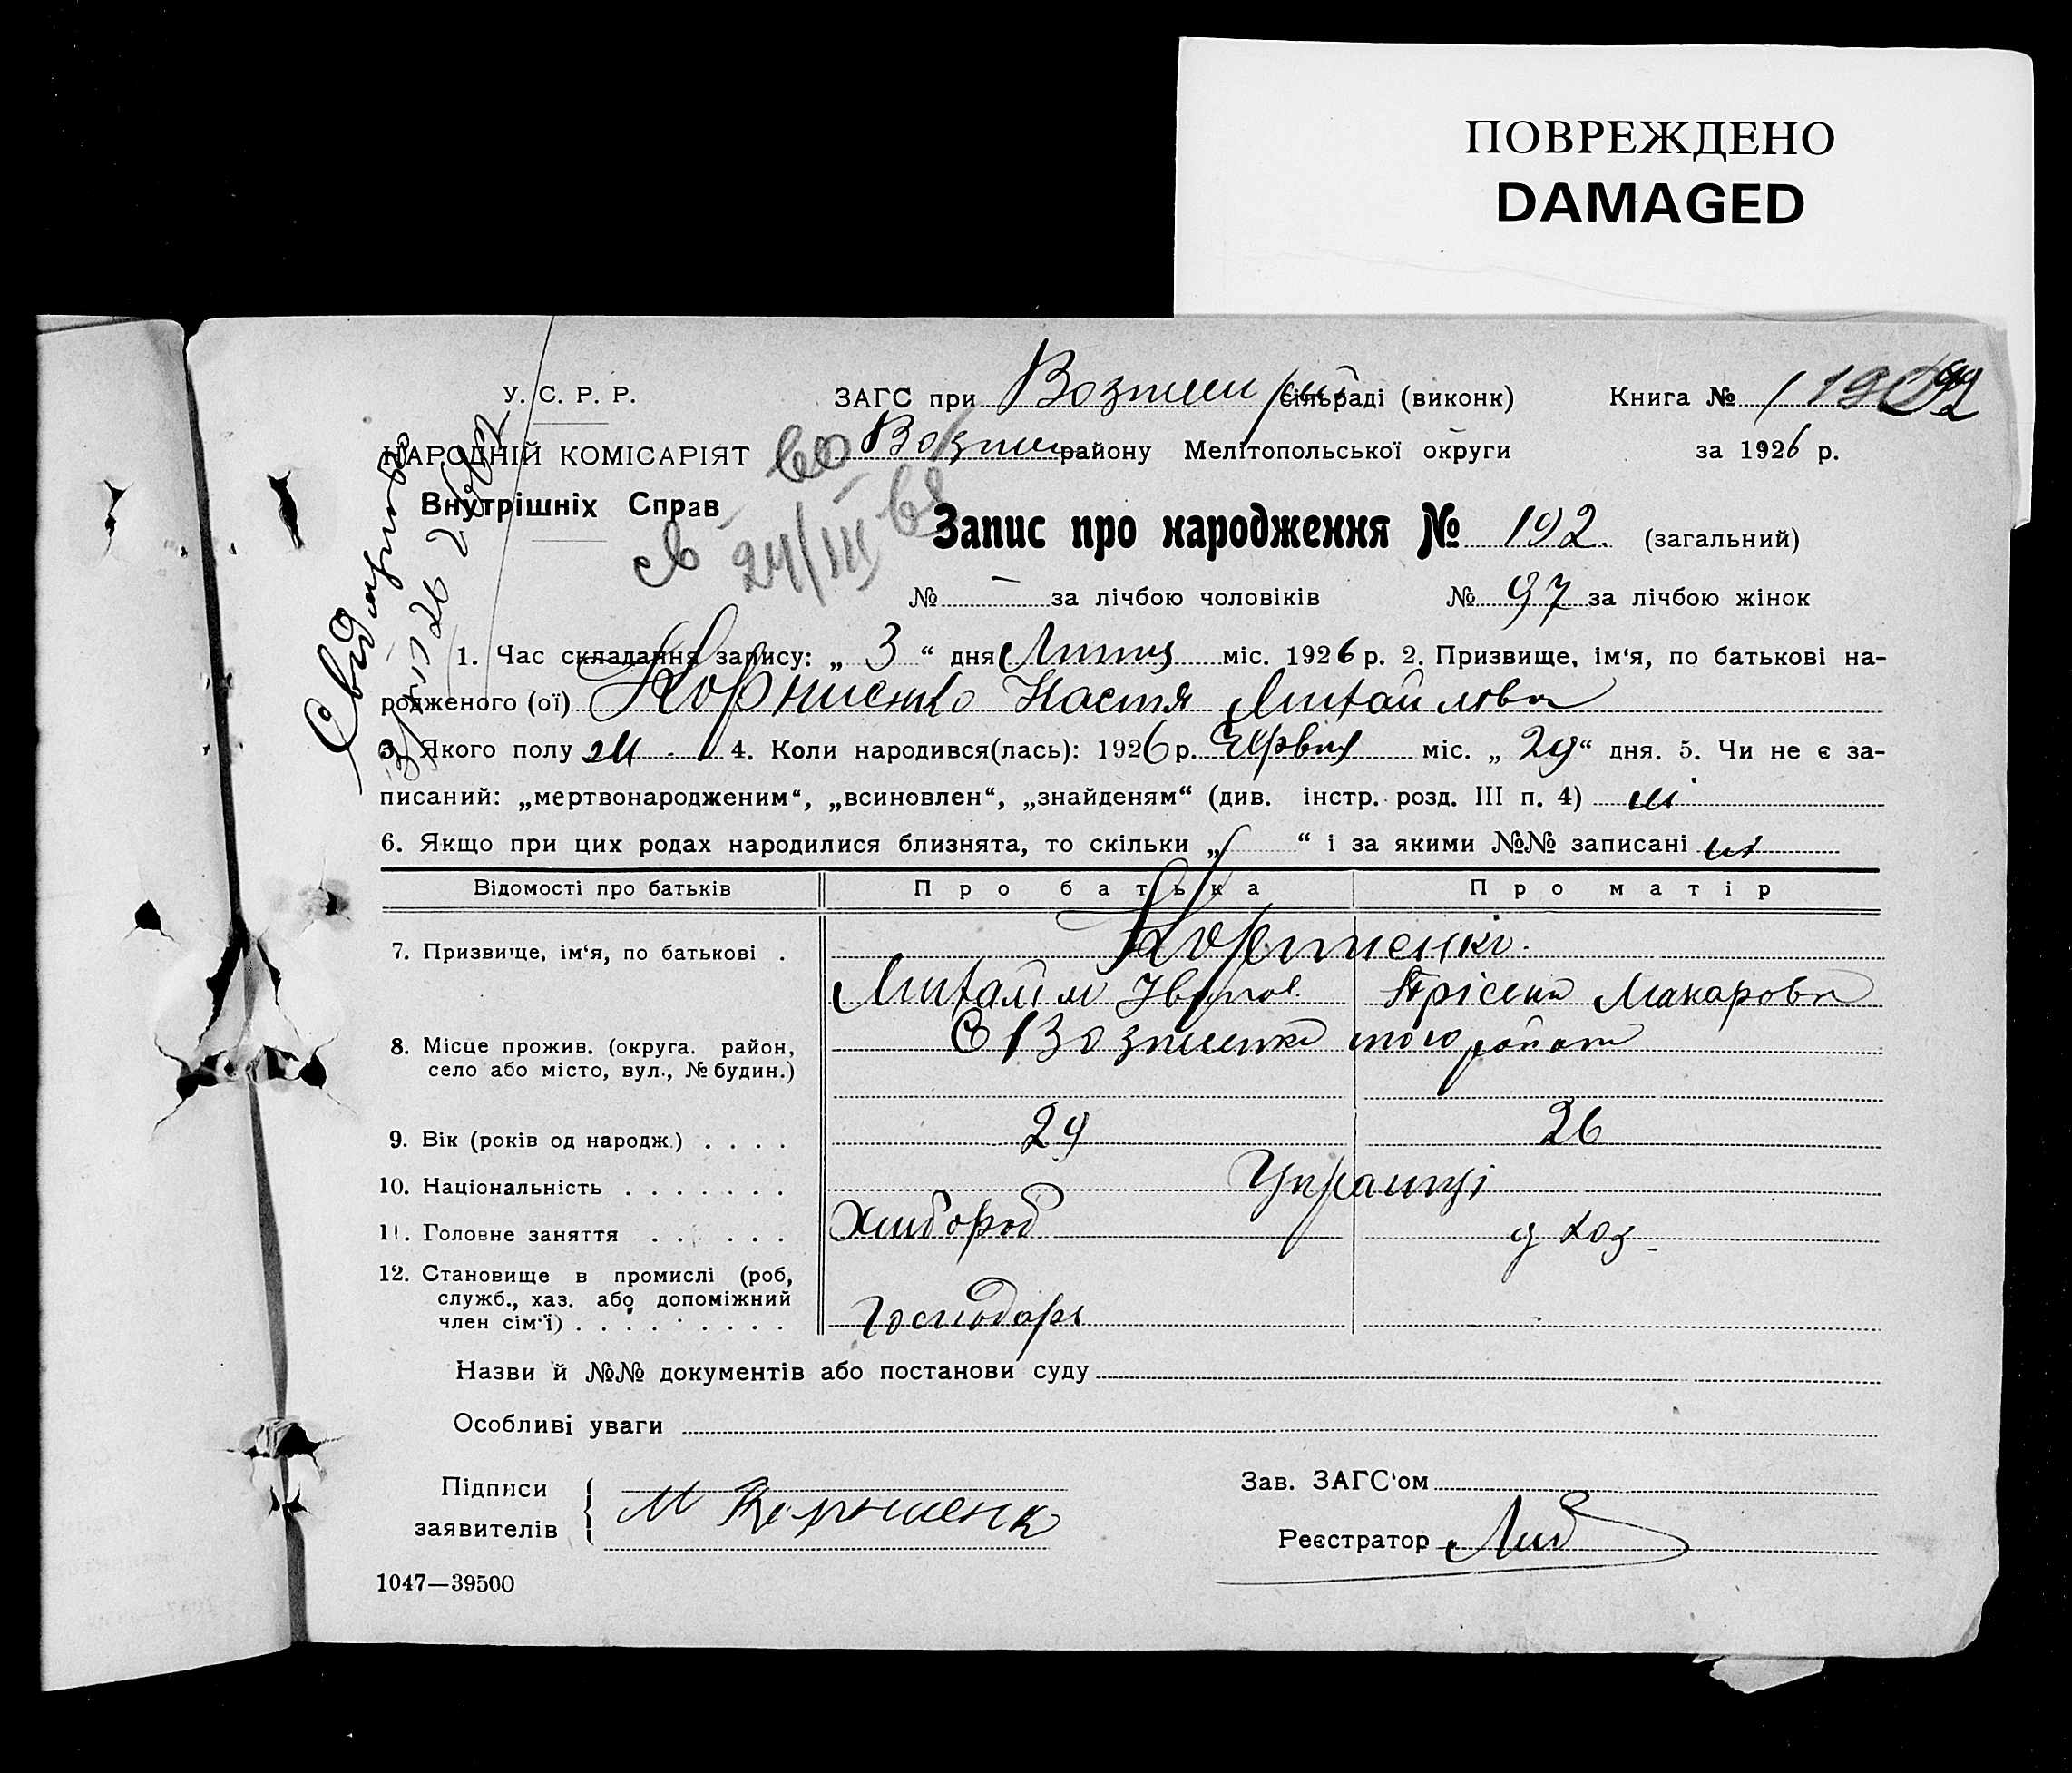 ПОВРЕЖДЕНО
DAMAGED
У. С. Р. Р.
НАРОДНІЙ КОМІСАРІЯТ
Внутрішніх Справ
24/III
ЗАГС при сільраді (виконк)
району Мелітопольської округи
Книга № 1
за 1926 р.
Запис про народження № 192. (загальний)
№ — за лічбою чоловіків № 97 за лічбою жінок
1. Час складання запису: „ 3 “ дня Липця міс. 1926 р. 2. Призвище, ім‘я, по батькові на-
родженого (ої) Корниенко Настя Михайлова
3. Якого полу ж. 4. Коли народився(лась): 1926 р. Червня міс. „ 29 “ дня. 5. Чи не є за-
писаний: „мертвонародженим“, „всиновлен“, „знайденям“ (див. інстр. розд. III п. 4) ні
6. Якщо при цих родах народилися близнята, то скільки „ “ і за якими №№ записані ні
Відомості про батьків Про батька Про матір
7. Призвище, ім‘я, по батькові . Корниенко.
Михайло Іванов. Прісенн Макарова
8. Місце прожив. (округа. район, С Возненка того района
село або місто, вул., № будин.)
9. Вік (років од народж.) . . . . 29 26
10. Національність . . . . . . . Українці
11. Головне заняття . . . . . . Хлібороб д хоз.
12. Становище в промислі (роб,
служб., хаз. або допоміжний
член сім‘ї) . . . . . . . . . Господарь
Назви й №№ документів або постанови суду
Особливі уваги
Підписи
заявителів
М Корниенк
Зав. ЗАГС‘ом
Реєстратор
1047—39500